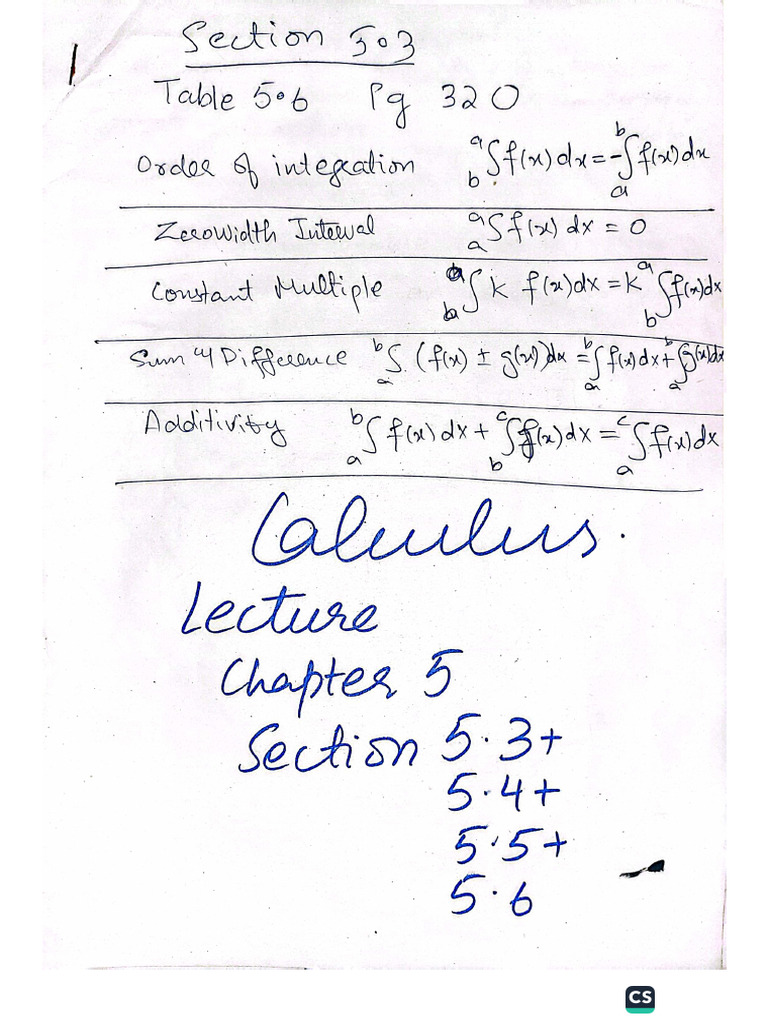 1
Section 5.3
Table 5.6 Pg 320
Order of integration ᵃ∫_b f(x) dx = -ᵇ∫_a f(x) dx
Zerowidth Interval ᵃ∫_a f(x) dx = 0
Constant Multiple ᵃ∫_b k f(x) dx = k ᵃ∫_b f(x) dx
Sum & Difference ᵇ∫_a (f(x) ± g(x)) dx = ᵇ∫_a f(x) dx + ᵇ∫_a g(x) dx
Additivity ᵇ∫_a f(x) dx + ᶜ∫_b f(x) dx = ᶜ∫_a f(x) dx
Calculus.
Lecture
Chapter 5
Section 5.3+
5.4+
5.5+
5.6
CS